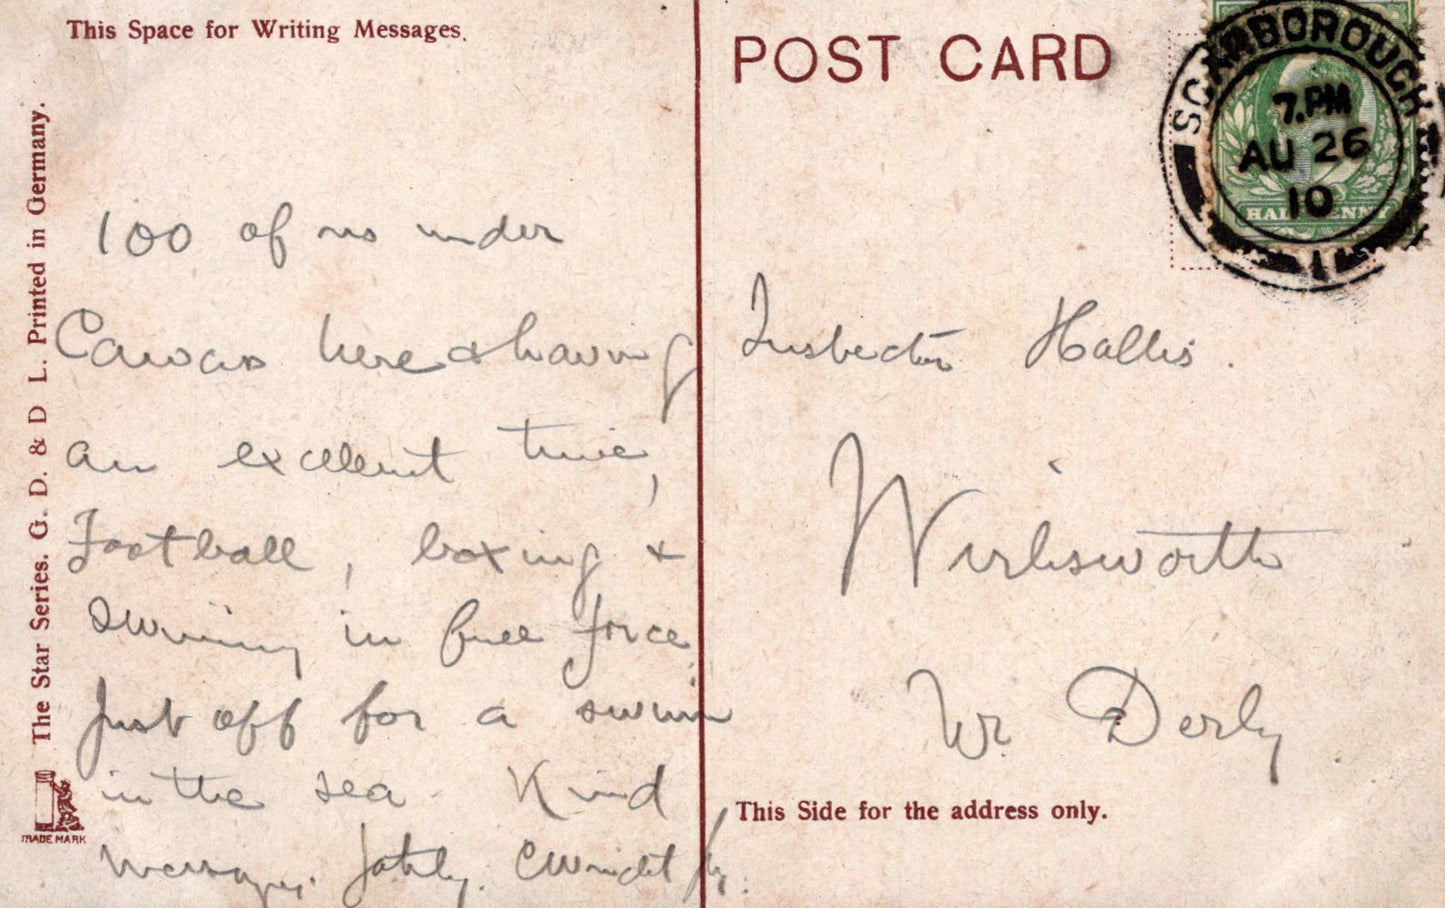 This Space for Writing Messages.
The Star Series. G. D. & D L. Printed in Germany.
TRADE MARK
100 of us under
Canvas here & having
an excellent time,
Football, boxing &
swimming in full force
Just off for a swim
in the sea. Kind
messages.
POST CARD
SCARBOROUGH
7.PM
AU 26
10
HALFPENNY
Inspector Hallis.
Wirksworth
Nr Derby
This Side for the address only.